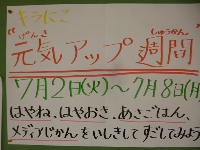 キラにこ
げんき しゅうかん
"元気アップ週間"
7月2日(火)～7月8日(月)
はやね、はやおき、あさごはん、
メディアじかんをいしきしてすごしてみよう